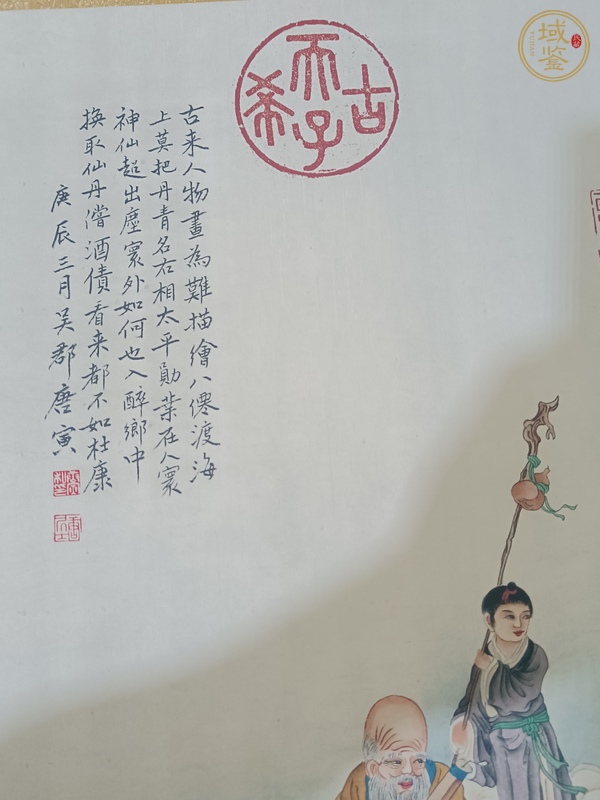 古希天子
古来人物畫為難描繪八僊渡海
上莫把丹青名右相太平勛業在人寰
神仙超出塵寰外如何也入醉鄉中
換取仙丹嘗酒債看来都不如杜康
庚辰三月吴郡唐寅
域鑒
YUJIAN